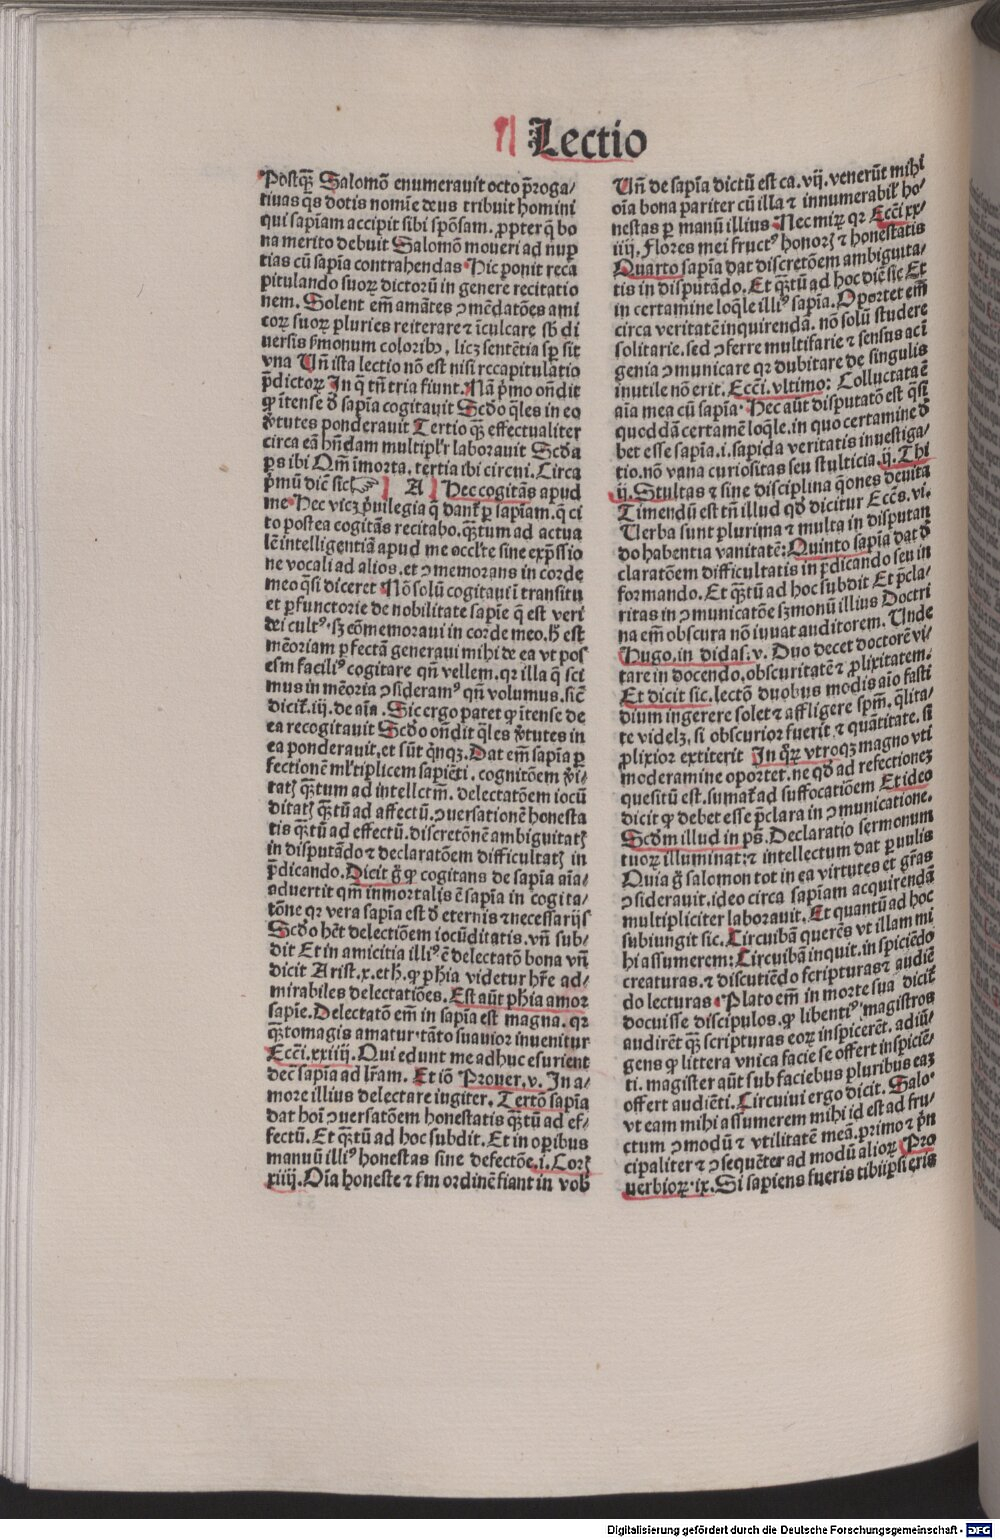 Lectio
Postqȝ Salomō enumerauit octo p̄roga/
tiuas q̄s dotis nomīe deus tribuit homini
qui sapīam accipit sibi spōsam. ꝓpter q̄ bo
na merito debuit Salomō moueri ad nup
tias cū sapīa contrahendas Hic ponit reca
pitulando suoꝝ dictorū in genere recitatio
nem. Solent em̄ amātes ꝯmēdatōes ami
coꝝ suoꝝ pluries reiterare ⁊ īculcare sb̄ di
uersis ẜmonum coloribꝰ, licȝ sentētia sꝑ sit
vna Vn̄ ista lectio nō est nisi recapitulatio
p̄dictoꝝ In q̄ tn̄ tria fiunt. Nā p̄mo on̄dit
ꝙ ītense d̄ sapīa cogitauit Scd̄o q̄les in eo
v̄tutes ponderauit Tertio qȝ effectualiter
circa eā hn̄dam multipl'r laborauit Scd̄a
ꝑs ibi Qm̄ īmorta. tertia ibi circui. Circa
p̄mū diē sic ☞ A Hec cogitās apud
me Hec vicȝ p̄uilegia q̄ dant̄ ꝑ sapīam. q̄ ci
to postea cogitās recitabo. qȝtum ad actua
lē intelligentiā apud me occl'te sine exp̄ssio
ne vocali ad alios. et ꝯmemorans in corde
meo q̄si diceret Nō solū cogitaui ī transitu
et ꝑfunctorie de nobilitate sapīe q̄ est veri
dei cultꝰ. sȝ cōmemoraui in corde meo. h̄ est
mēoriam ꝑfectā generaui mihi de ea vt pos
esm faciliꝰ cogitare qn̄ vellem. qꝛ illa q̄ sci
mus in mēoria ꝯsideramꝰ qn̄ volumus. sic̄
dicit̄. iij. de aīa. Sic ergo patet ꝙ ītense de
ea recogitauit Scd̄o on̄dit q̄les v̄tutes in
ea ponderauit. et sūt q̄nqȝ. Dat em̄ sapīa ꝑ
fectionē ml'tiplicem sapiēti. cognitōem v̄i/
tatꝭ qȝtum ad intellctm̄. delectatōem iocū
ditatꝭ qȝtū ad affectū. ꝯuersationē honesta
tis qȝtū ad effectū. discretōnē ambiguitatꝭ
in disputādo ⁊ declaratōem difficultatꝭ in
p̄dicando. Dicit g̊ ꝙ cogitans de sapīa aīa/
aduertit qm̄ inmortalis ē sapīa in cogita/
tōne qꝛ vera sapīa est d̄ eternis ⁊ necessarijs
Scd̄o hēt delectiōem iocūditatis. vn̄ sub/
dit Et in amicitia illiꝰ ē delectatō bona vn̄
dicit Arist. x. eth. ꝙ ph̄ia videtur hr̄e ad/
mirabiles delectatiōes. Est aūt ph̄ia amor
sapīe. Delectatō em̄ in sapīa est magna. qꝛ
qȝtomagis amatur tāto suauior inuenitur
Ecc̄i. xxiiij. Qui edunt me adhuc esurient
dec̄ sapīa ad lr̄am. Et iō Prouer. v. In a/
more illius delectare iugiter. Tertō sapīa
dat hoī ꝯuersatōem honestatis qȝtū ad ef/
fectū. Et qȝtū ad hoc subdit. Et in oꝑibus
manuū illiꝰ honestas sine defectōe. i. Corꝭ
xiiij. Oīa honeste ⁊ ẜm ordinē fiant in vob
Vn̄ de sapīa dictū est ca. vij. venerūt mihi
oīa bona pariter cū illa ⁊ innumerabil' ho/
nestas ꝑ manū illius Nec miꝝ qꝛ Ecc̄i xx/
iiij. Flores mei fructꝰ honorꝭ ⁊ honestatis
Quarto sapīa dat discretōem ambiguita/
tis in disputādo. Et qȝtū ad hoc diē sic Et
in certamine loq̄le illiꝰ sapīa. Oportet em̄
circa veritatē inquirendā. nō solū studere
solitarie. sed ꝯferre multifarie ⁊ sensus aci
genia ꝯmunicare qꝛ dubitare de singulis
inutile nō erit. Ecc̄i. vltimo: Colluctata ē
aīa mea cū sapīa Hec aūt disputatō est q̄si
quoddā certamē loq̄le. in quo certamine d̄
bet esse sapīa. i. sapida veritatis inuestiga/
tio. nō vana curiositas seu stulticia. ij. Thi
ij. Stultas ⁊ sine disciplina q̄ones deuita
Timendū est tn̄ illud qd̄ dicitur Ecc̄s. vi.
Uerba sunt plurima ⁊ multa in disputan
do habentia vanitatē: Quinto sapīa dat d̄
claratōem difficultatis in p̄dicando seu in
formando. Et qȝtū ad hoc subdit Et p̄cla/
ritas in ꝯmunicatōe sȝmonū illius Doctri
na em̄ obscura nō iuuat auditorem. Unde
Hugo. in didas. v. Duo decet doctorē vi/
tare in docendo. obscuritatē ⁊ ꝓlixitatem.
Et dicit sic. lectō duobus modis aīo fasti
dium ingerere solet ⁊ affligere spm̄. q̄lita/
te videlȝ. si obscurior fuerit ⁊ quātitate. si
ꝓlixior extiterit In q̄ꝝ vtroqȝ magno vti
moderamine oportet. ne qd̄ ad refectionez
quesitū est. sumat̄ ad suffocatiōem Et ideo
dicit ꝙ debet esse p̄clara in ꝯmunicatione.
Scd̄m illud in ps. Declaratio sermonum
tuoꝝ illuminat: ⁊ intellectum dat ꝑuulis
Quia g̊ salomon tot in ea virtutes et gr̄as
ꝯsiderauit. ideo circa sapīam acquirendā
multipliciter laborauit. Et quantū ad hoc
subiungit sic. Circuibā querēs vt illam mi
hi assumerem: Circuibā inquit. in spiciēdo
creaturas. ⁊ discutiēdo scripturas ⁊ audiē
do lecturas Plato em̄ in morte sua dicit̄
docuisse discipulos. ꝙ libentiꝰ magistros
audirēt qȝ scripturas eoꝝ inspicerēt. adiū/
gens ꝙ littera vnica facie se offert inspiciē/
ti. magister aūt sub faciebus pluribus eaꝫ
offert audiēti. Circuiui ergo dicit. Salo
vt eam mihi assumerem mihi id est ad fru/
ctum ꝯmodū ⁊ vtilitatē meā. primo ⁊ p̄n
cipaliter ⁊ ꝯsequēter ad modū alioꝝ Pro
uerbioꝝ. ix. Si sapiens fueris tibiip̄si eris
Digitalisierung gefördert durch die Deutsche Forschungsgemeinschaft - DFG